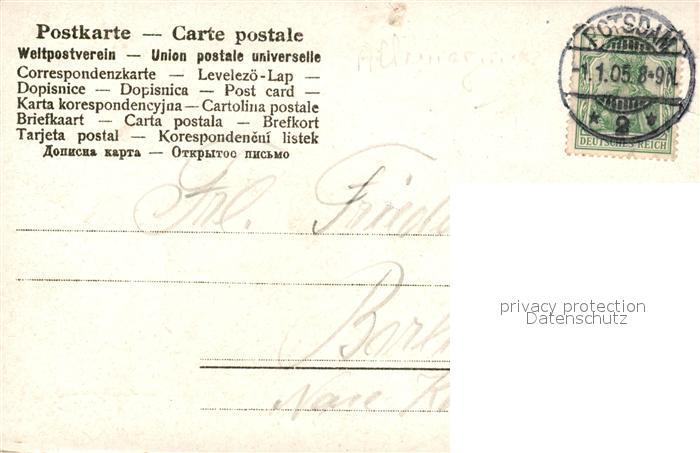 Postkarte — Carte postale
Weltpostverein — Union postale universelle
Correspondenzkarte — Levelező-Lap —
Dopisnice — Dopisnica — Post card —
Karta korespondencyjna — Cartolina postale
Briefkaart — Carta postala — Brefkort
Tarjeta postal — Korespondenční listek
Дописна карта — Открытое письмо
POTSDAM
1.1.05. 8-9N.
* 2 *
DEUTSCHES REICH
Frl. Frieda
privacy protection
Datenschutz
Berl